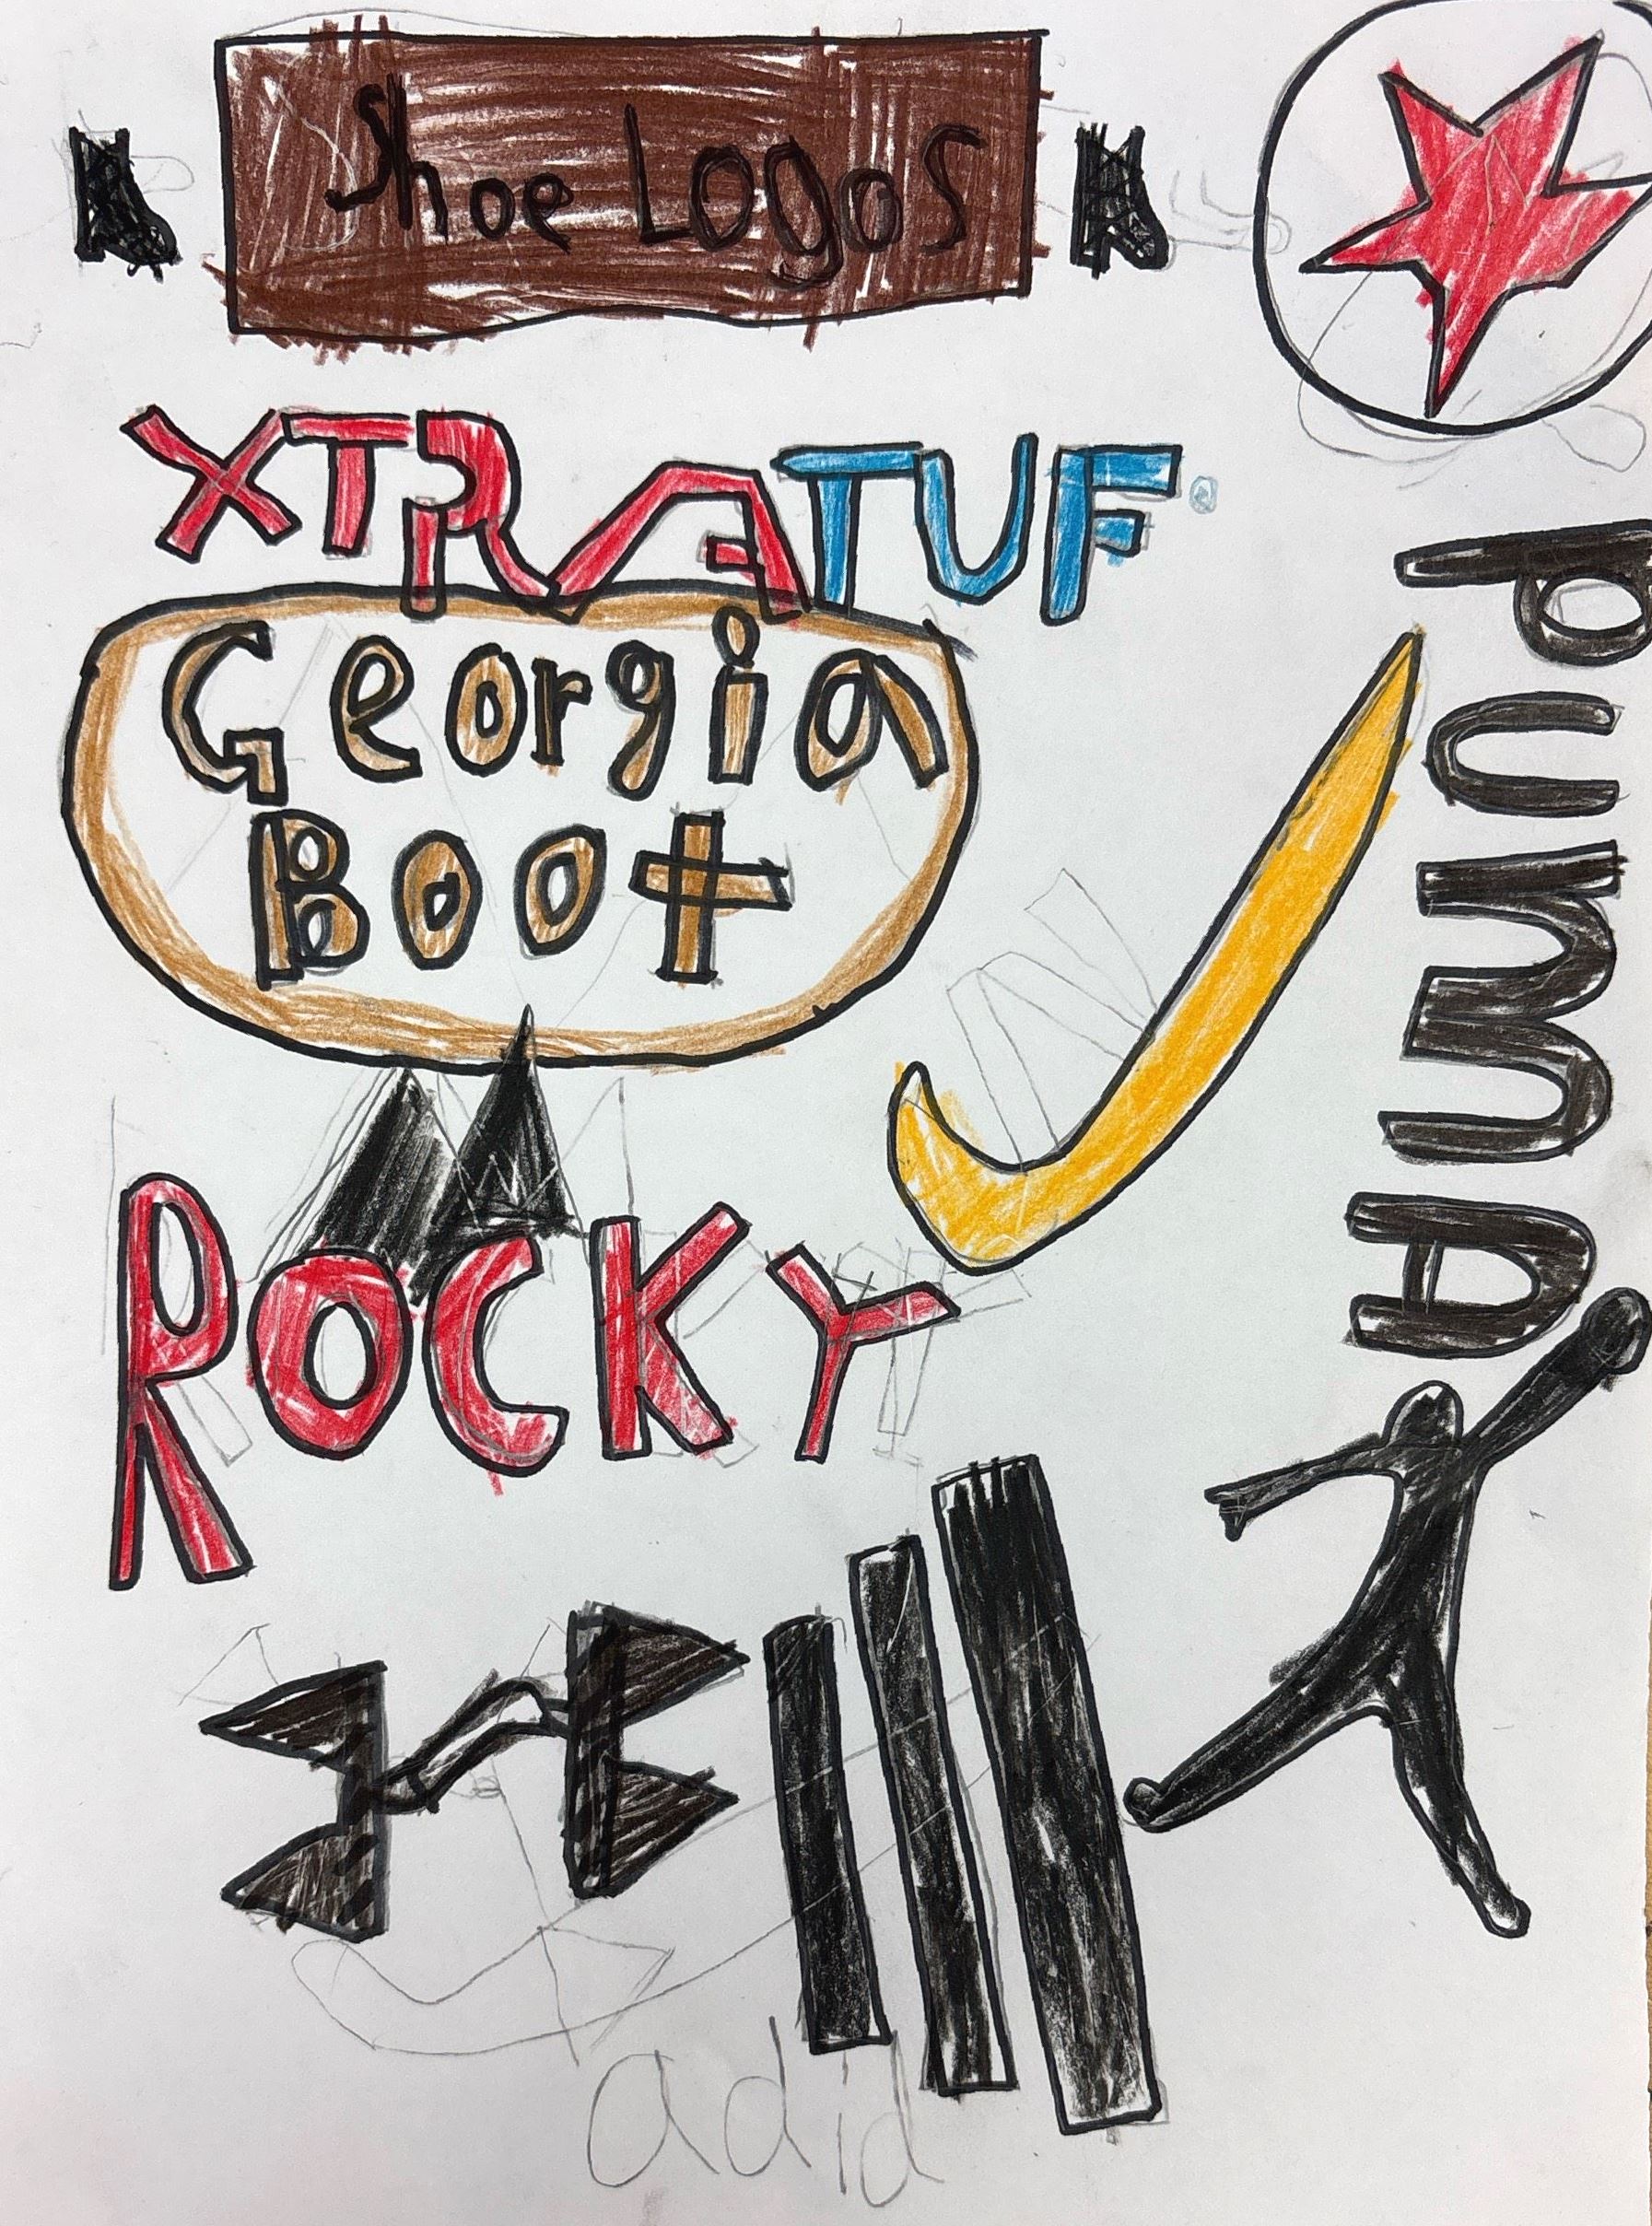 Shoe Logos
XTRATUF
Georgia
Boot
ROCKY
PUMA
adid